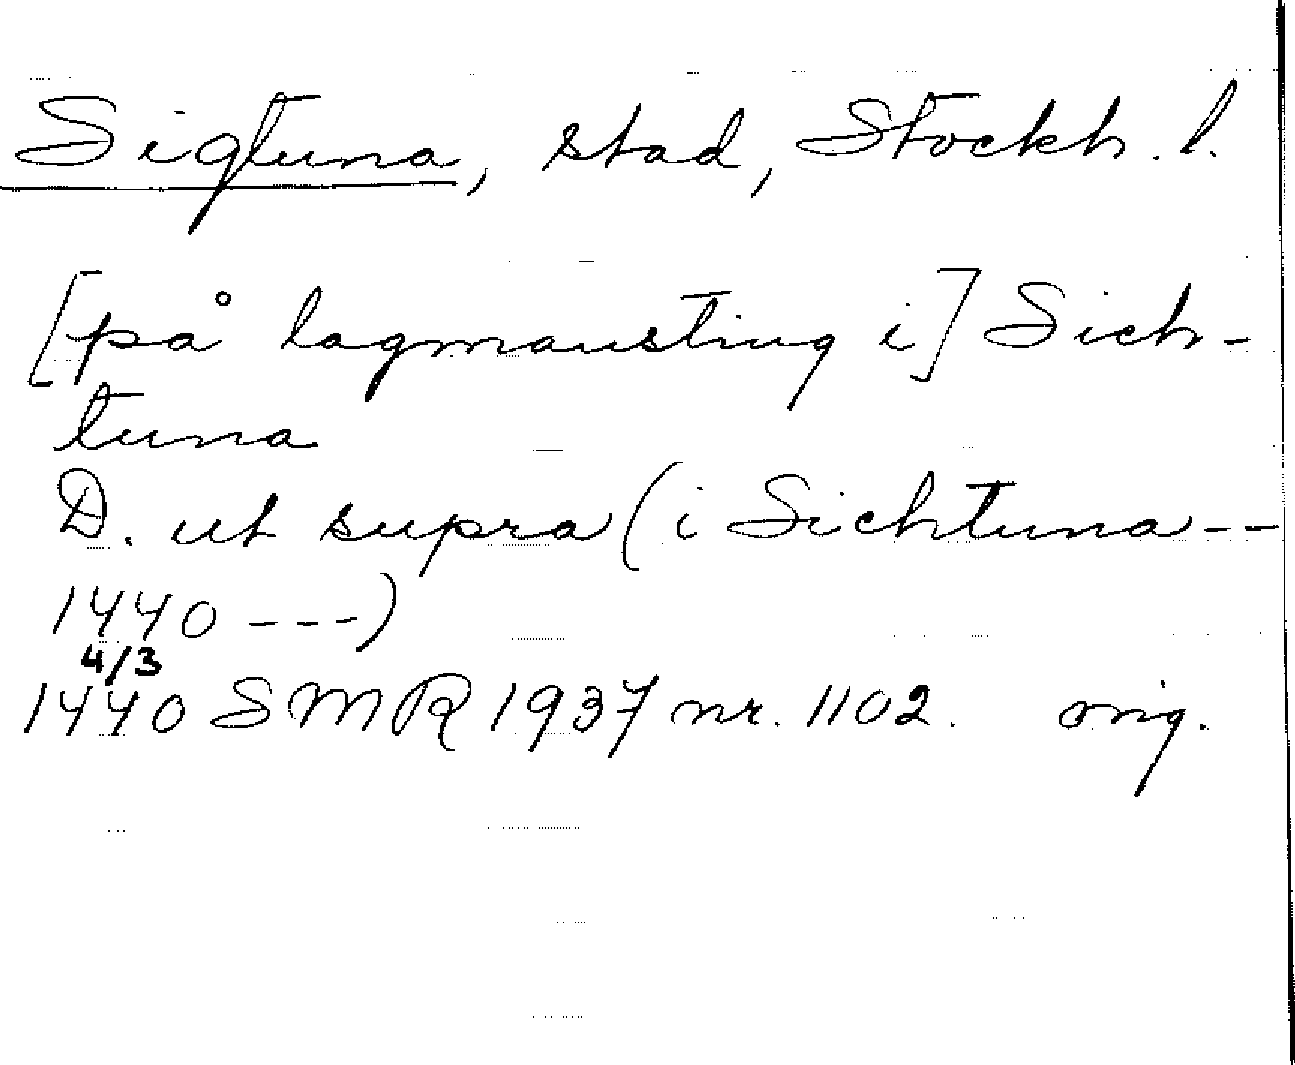 Sigtuna, stad, Stockh. l.
[på lagmansting i] Sich-
tuna
D. ut supra (i Sichtuna --
1440 ---)
4/3
1440 SMR 1937 nr. 1102. orig.